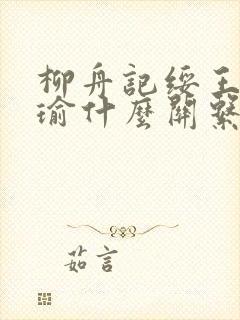 柳舟記綏王
瑜什麼關繫
茹言